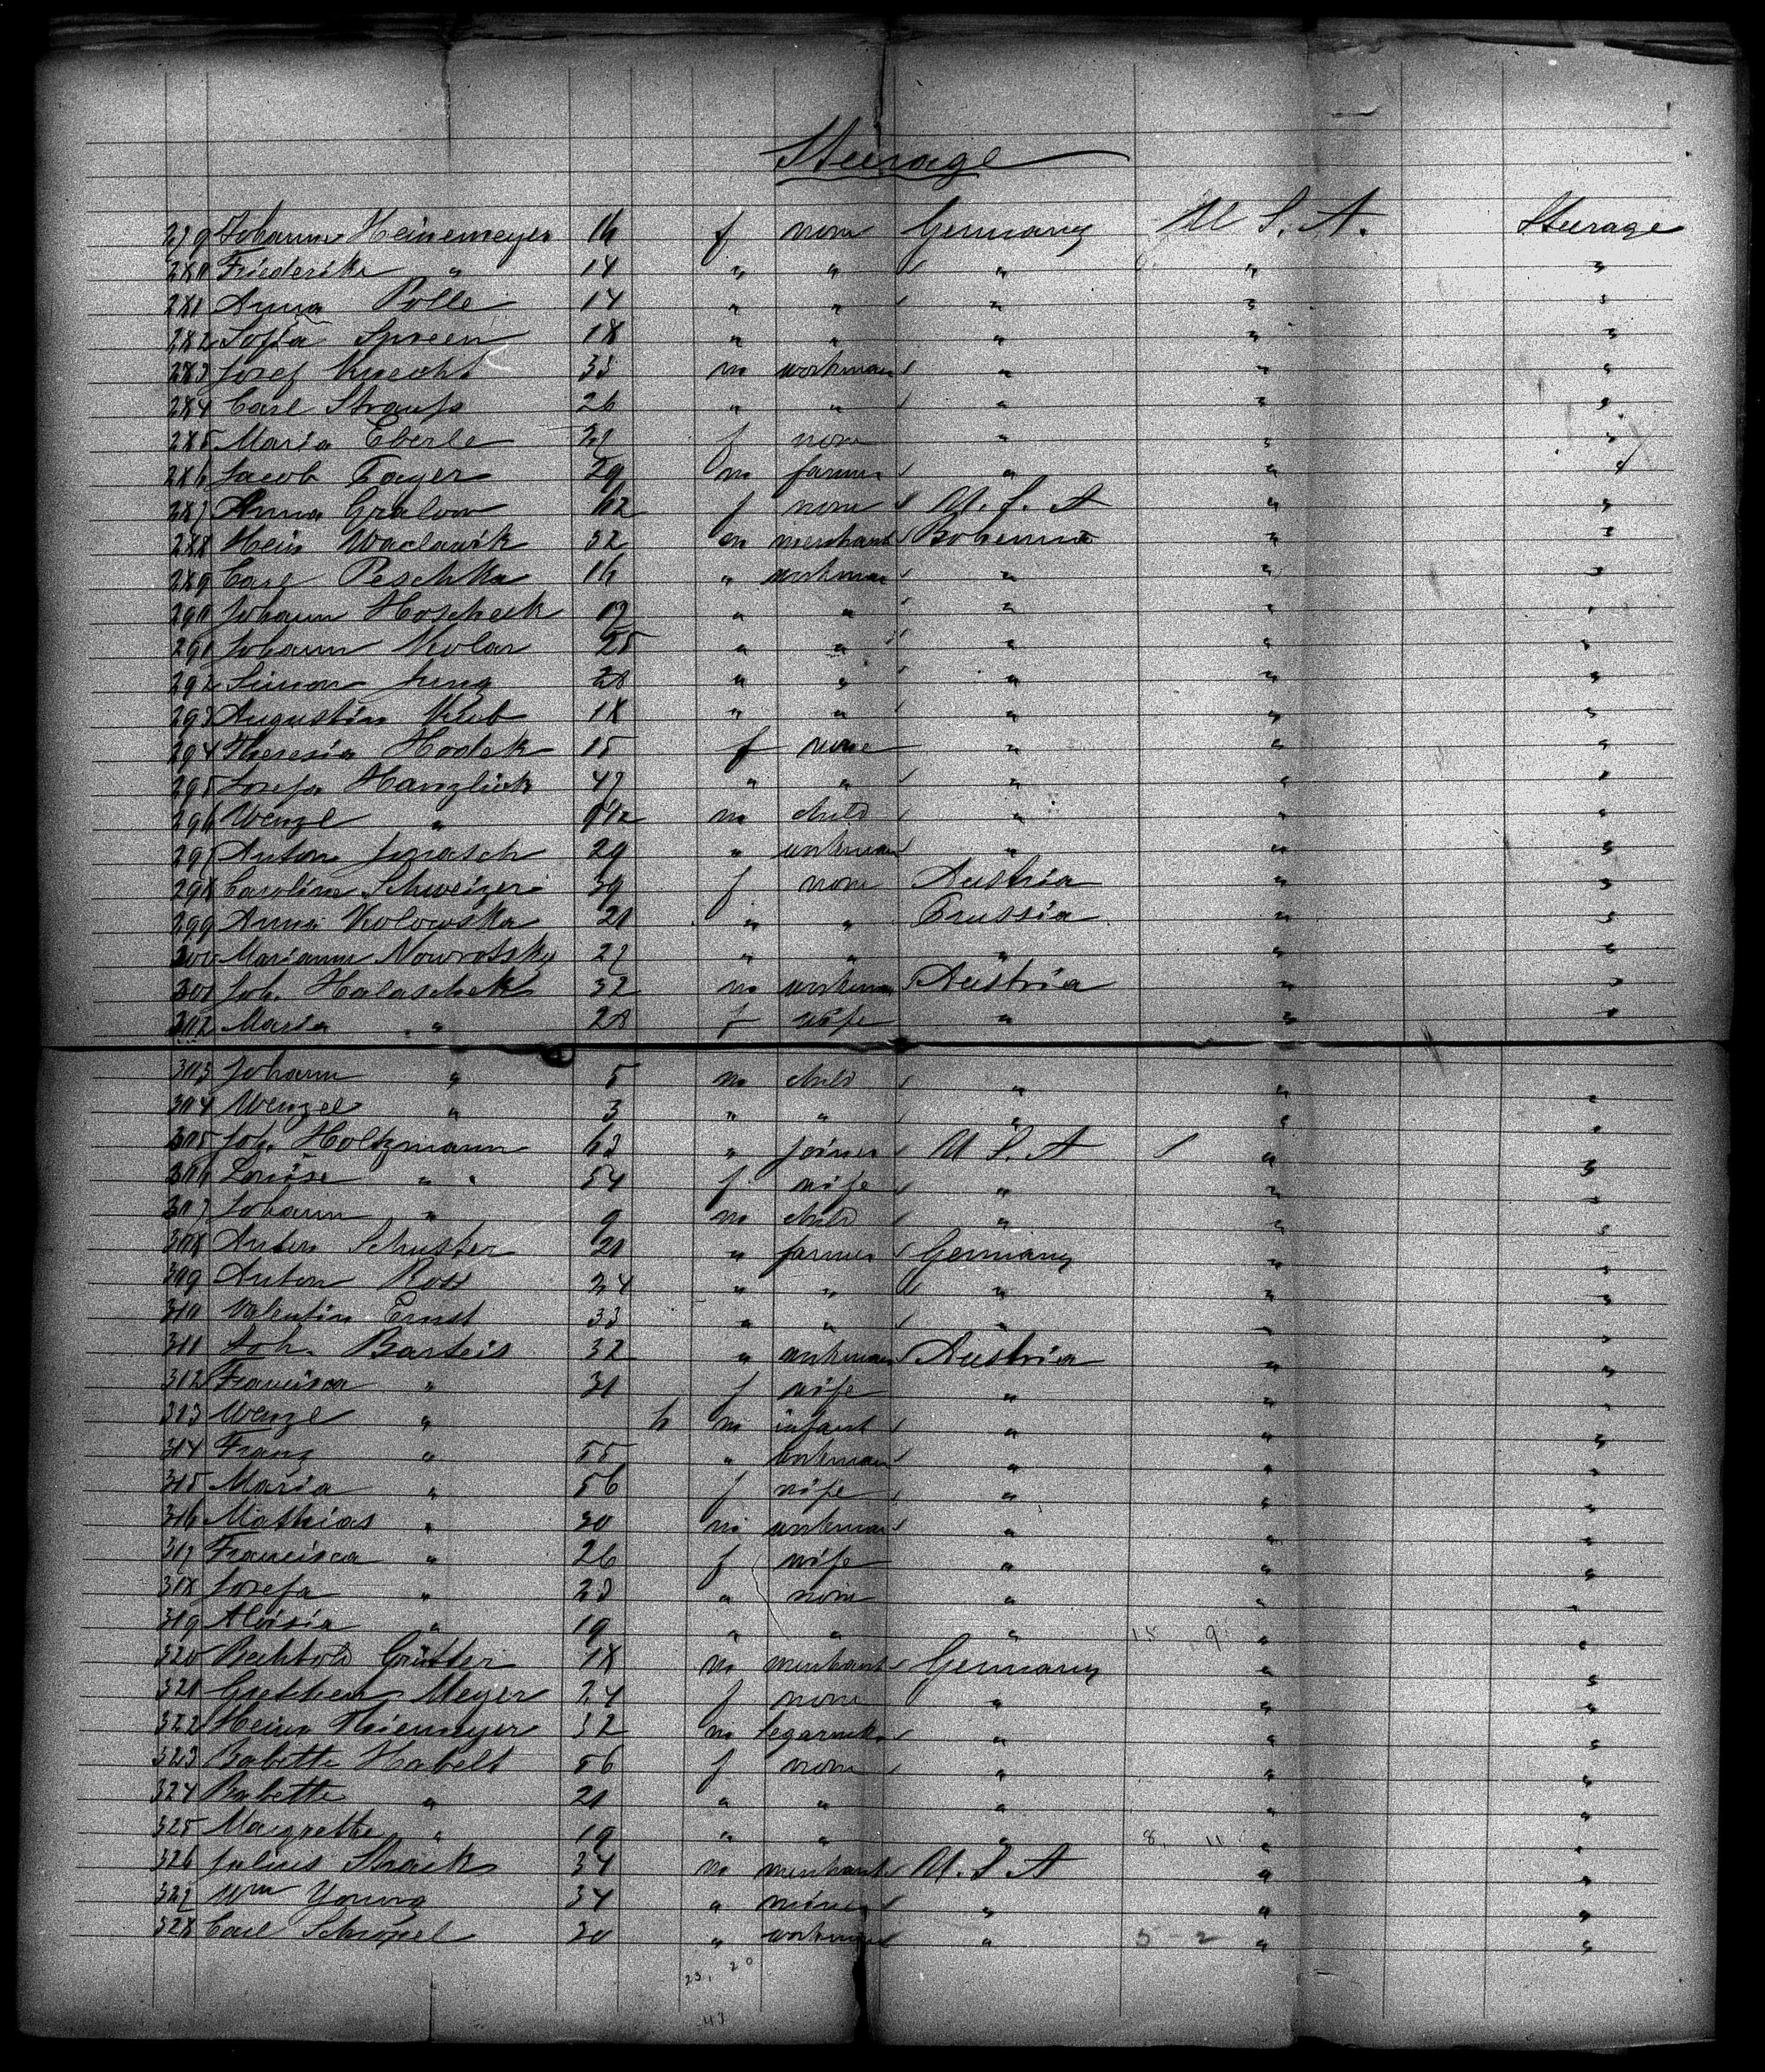 Steerage
279 Johanne Heinemeyer 16 f none Germany U S. A. Steerage
280 Friederike " 14 " " " " "
281 Anna Polle 14 " " " " "
282 Sofia Spreen 18 " " " " "
283 Josef Knecht 33 m workman " " "
284 Carl Strauss 26 " " " " "
285 Maria Eberle 27 f none " " "
286 Jacob Fayer 29 m farmer " " "
287 Anna Gralow 62 f none U. S. A " "
288 Hein Waclawik 32 m merchant Bohemia " "
289 Carl Peschka 16 " workman " " "
290 Johann Hoscheck 17 " " " " "
291 Johann Kolar 25 " " " " "
292 Simon Jung 28 " " " " "
293 Augustin Kub 18 " " " " "
294 Theresia Hodek 15 f none " " "
295 Josefa Hanzlick 47 " " " " "
296 Wenzl " 9 1/2 m child " " "
297 Anton Jirasch 29 " workman " " "
298 Caroline Schweizer 39 f none Austria " "
299 Anna Kolowska 21 " " Prussia " "
300 Marianne Nowrotsky 27 " " " " "
301 Joh. Halaschek 32 m workman Austria " "
302 Maria " 28 f wife " " "
303 Johann " 5 m child " " "
304 Wenzel " 3 " " " " "
305 Joh. Holtzmann 63 " joiner U S. A " "
306 Louise " 54 f wife " " "
307 Johann " 9 m child " " "
308 Anton Schuster 21 " farmer Germany " "
309 Anton Ross 24 " " " " "
310 Valentin Ernst 33 " " " " "
311 Joh. Barteis 32 " workman Austria " "
312 Francisca " 31 f wife " " "
313 Wenzl " 6 m infant " " "
314 Franz " 55 " workman " " "
315 Maria " 56 f wife " " "
316 Mathias " 30 m workman " " "
317 Francisca " 26 f wife " " "
318 Josefa " 23 " none " " "
319 Aloisia " 19 " " " 15 9 " "
320 Bechtold Grütter 18 m merchant Germany " "
321 Gretchen Meyer 24 f none " " "
322 Hein Heiemeyer 32 m segarmk. " " "
323 Babette Habelt 56 f none " " "
324 Babette " 21 " " " " "
325 Magrethe " 19 " " " 8, 11 " "
326 Julius Strack 34 m merchant U. S. A " "
327 Wm Young 34 " miner " " "
328 Carl Schropel 30 " workman " 5 - 2 " "
23, 20
43